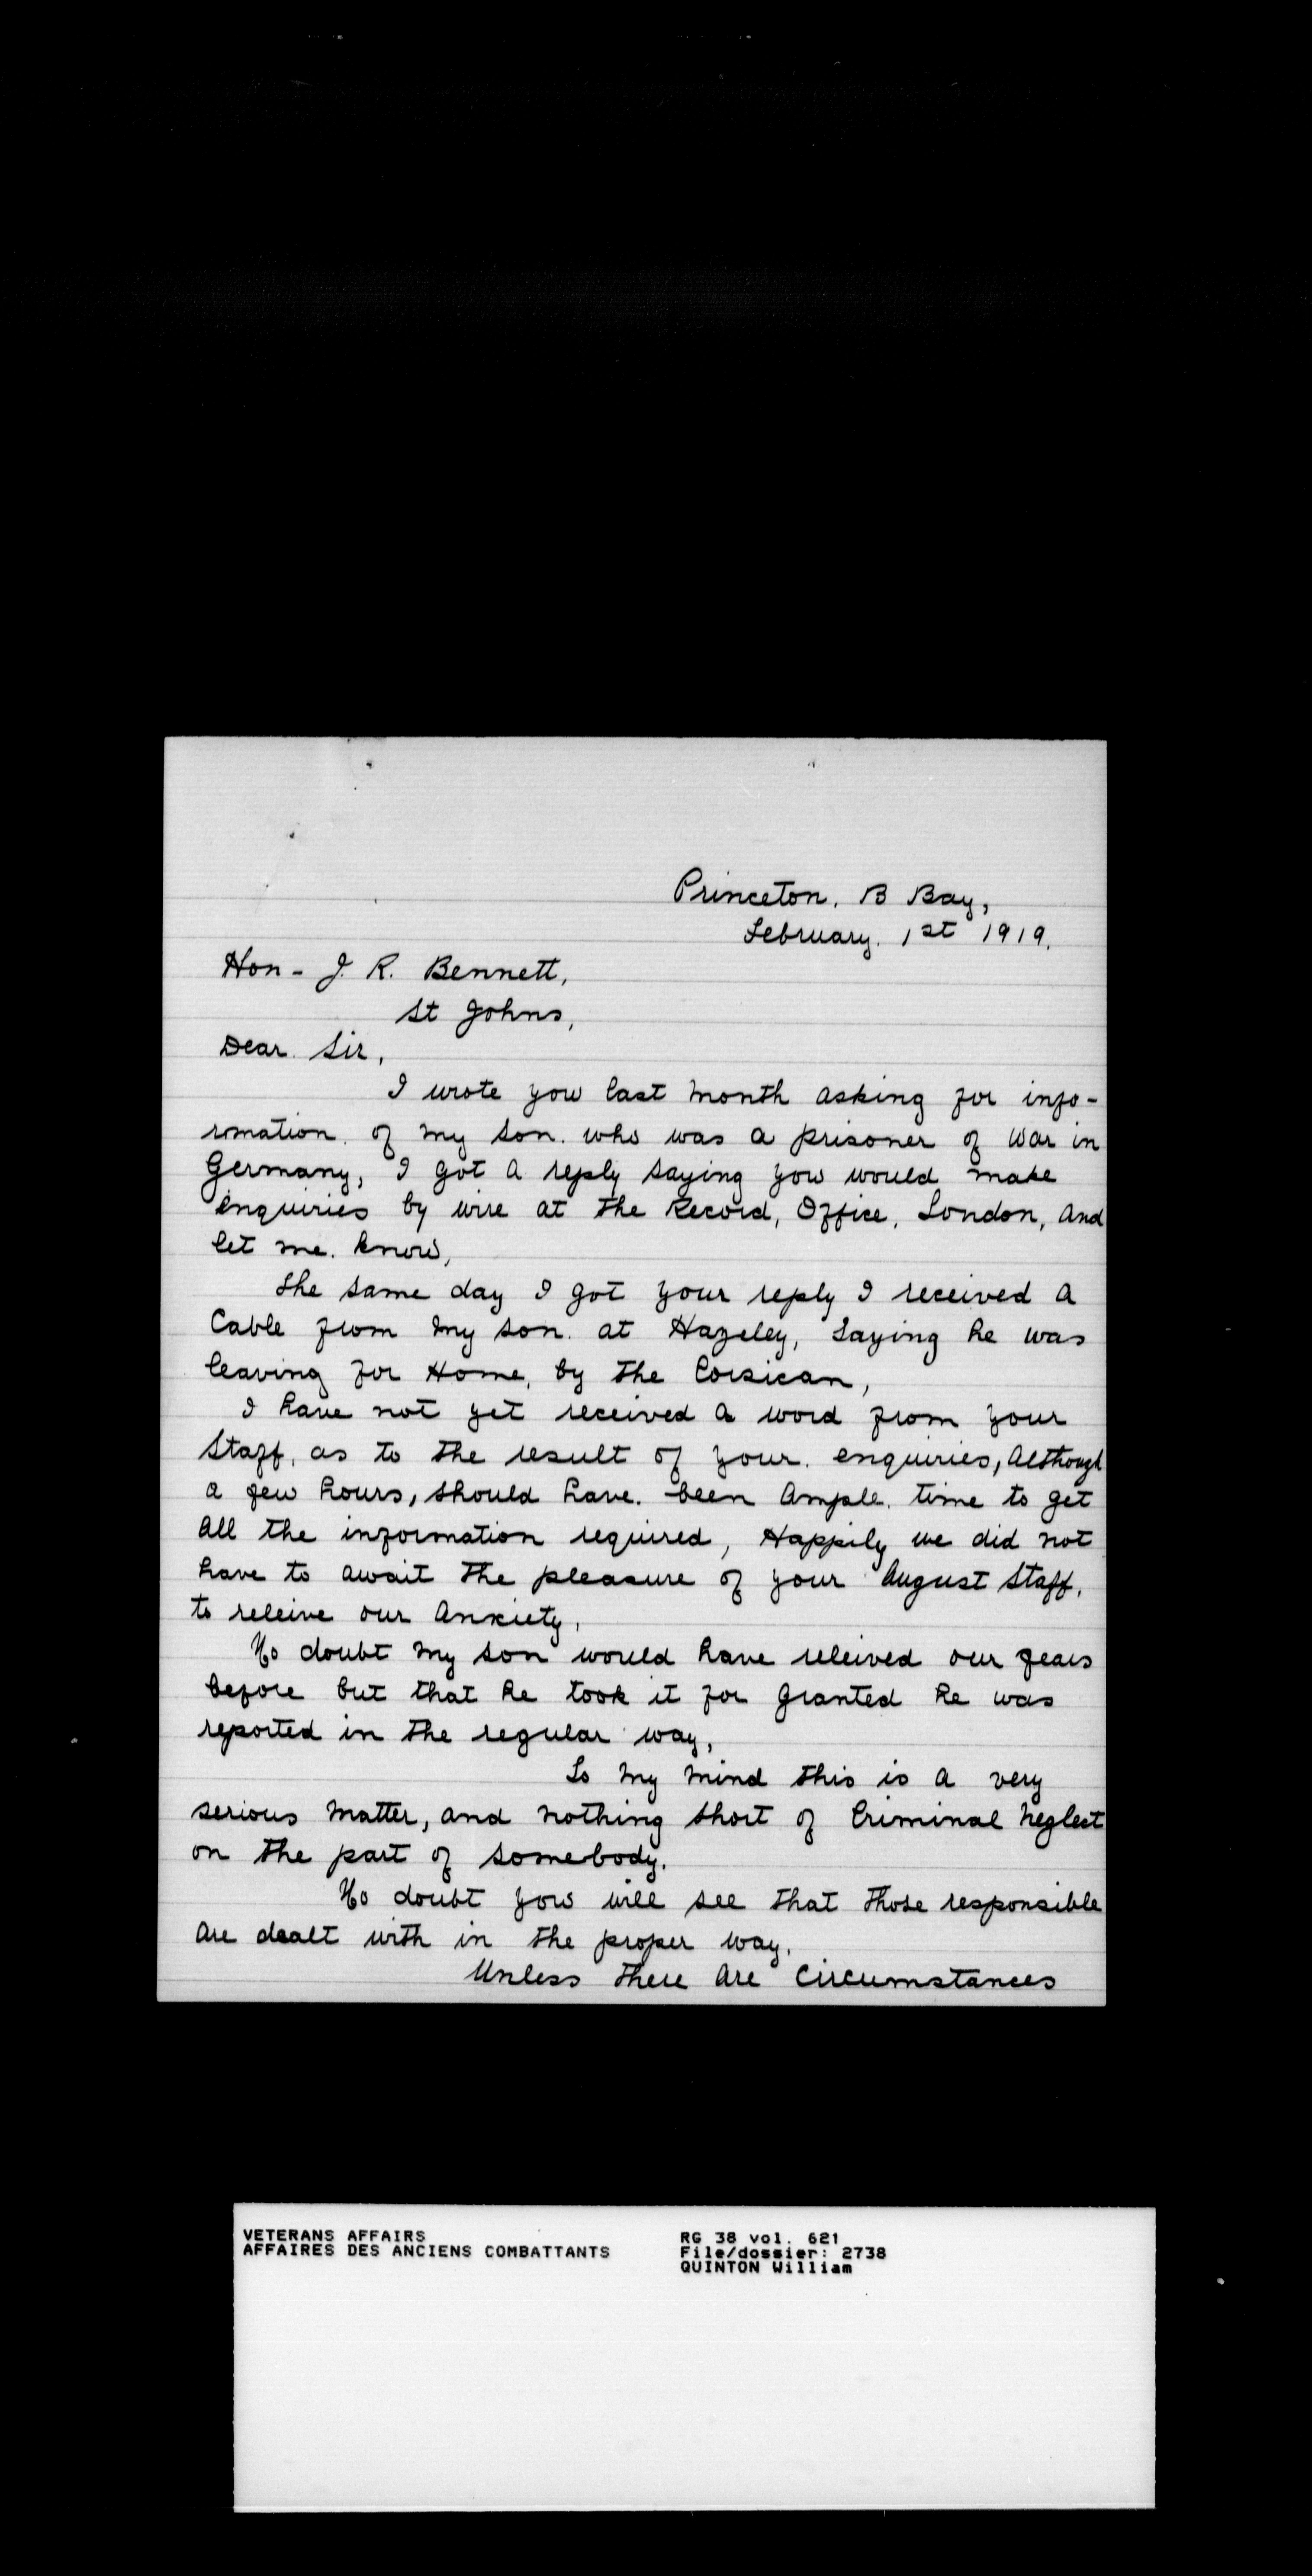 Princeton, B Bay,
February. 1st 1919.
Hon - J. R. Bennett,
St Johns,
Dear Sir,
I wrote you last month asking for info-
rmation. of my son. who was a prisoner of War in
Germany, I got a reply saying you would make
enquiries by wire at the Record, Office, London, and
let me. know,
The same day I got your reply I received a
Cable from my son. at Hazeley, saying he was
leaving for Home, by the Corsican,
I have not yet received a word from your
Staff, as to the result of your. enquiries, Although
a few hours, should have. been ample. time to get
all the information required, Happily we did not
have to await the pleasure of your August Staff,
to releive our anxiety,
No doubt my son would have releived our fears
before but that he took it for granted he was
reported in the regular way,
To my mind this is a very
serious matter, and nothing short of Criminal Neglect
on the part of somebody.
No doubt you will see that those responsible
are dealt with in the proper way.
Unless there are circumstances
VETERANS AFFAIRS
AFFAIRES DES ANCIENS COMBATTANTS
RG 38 vol. 621
File/dossier: 2738
QUINTON William